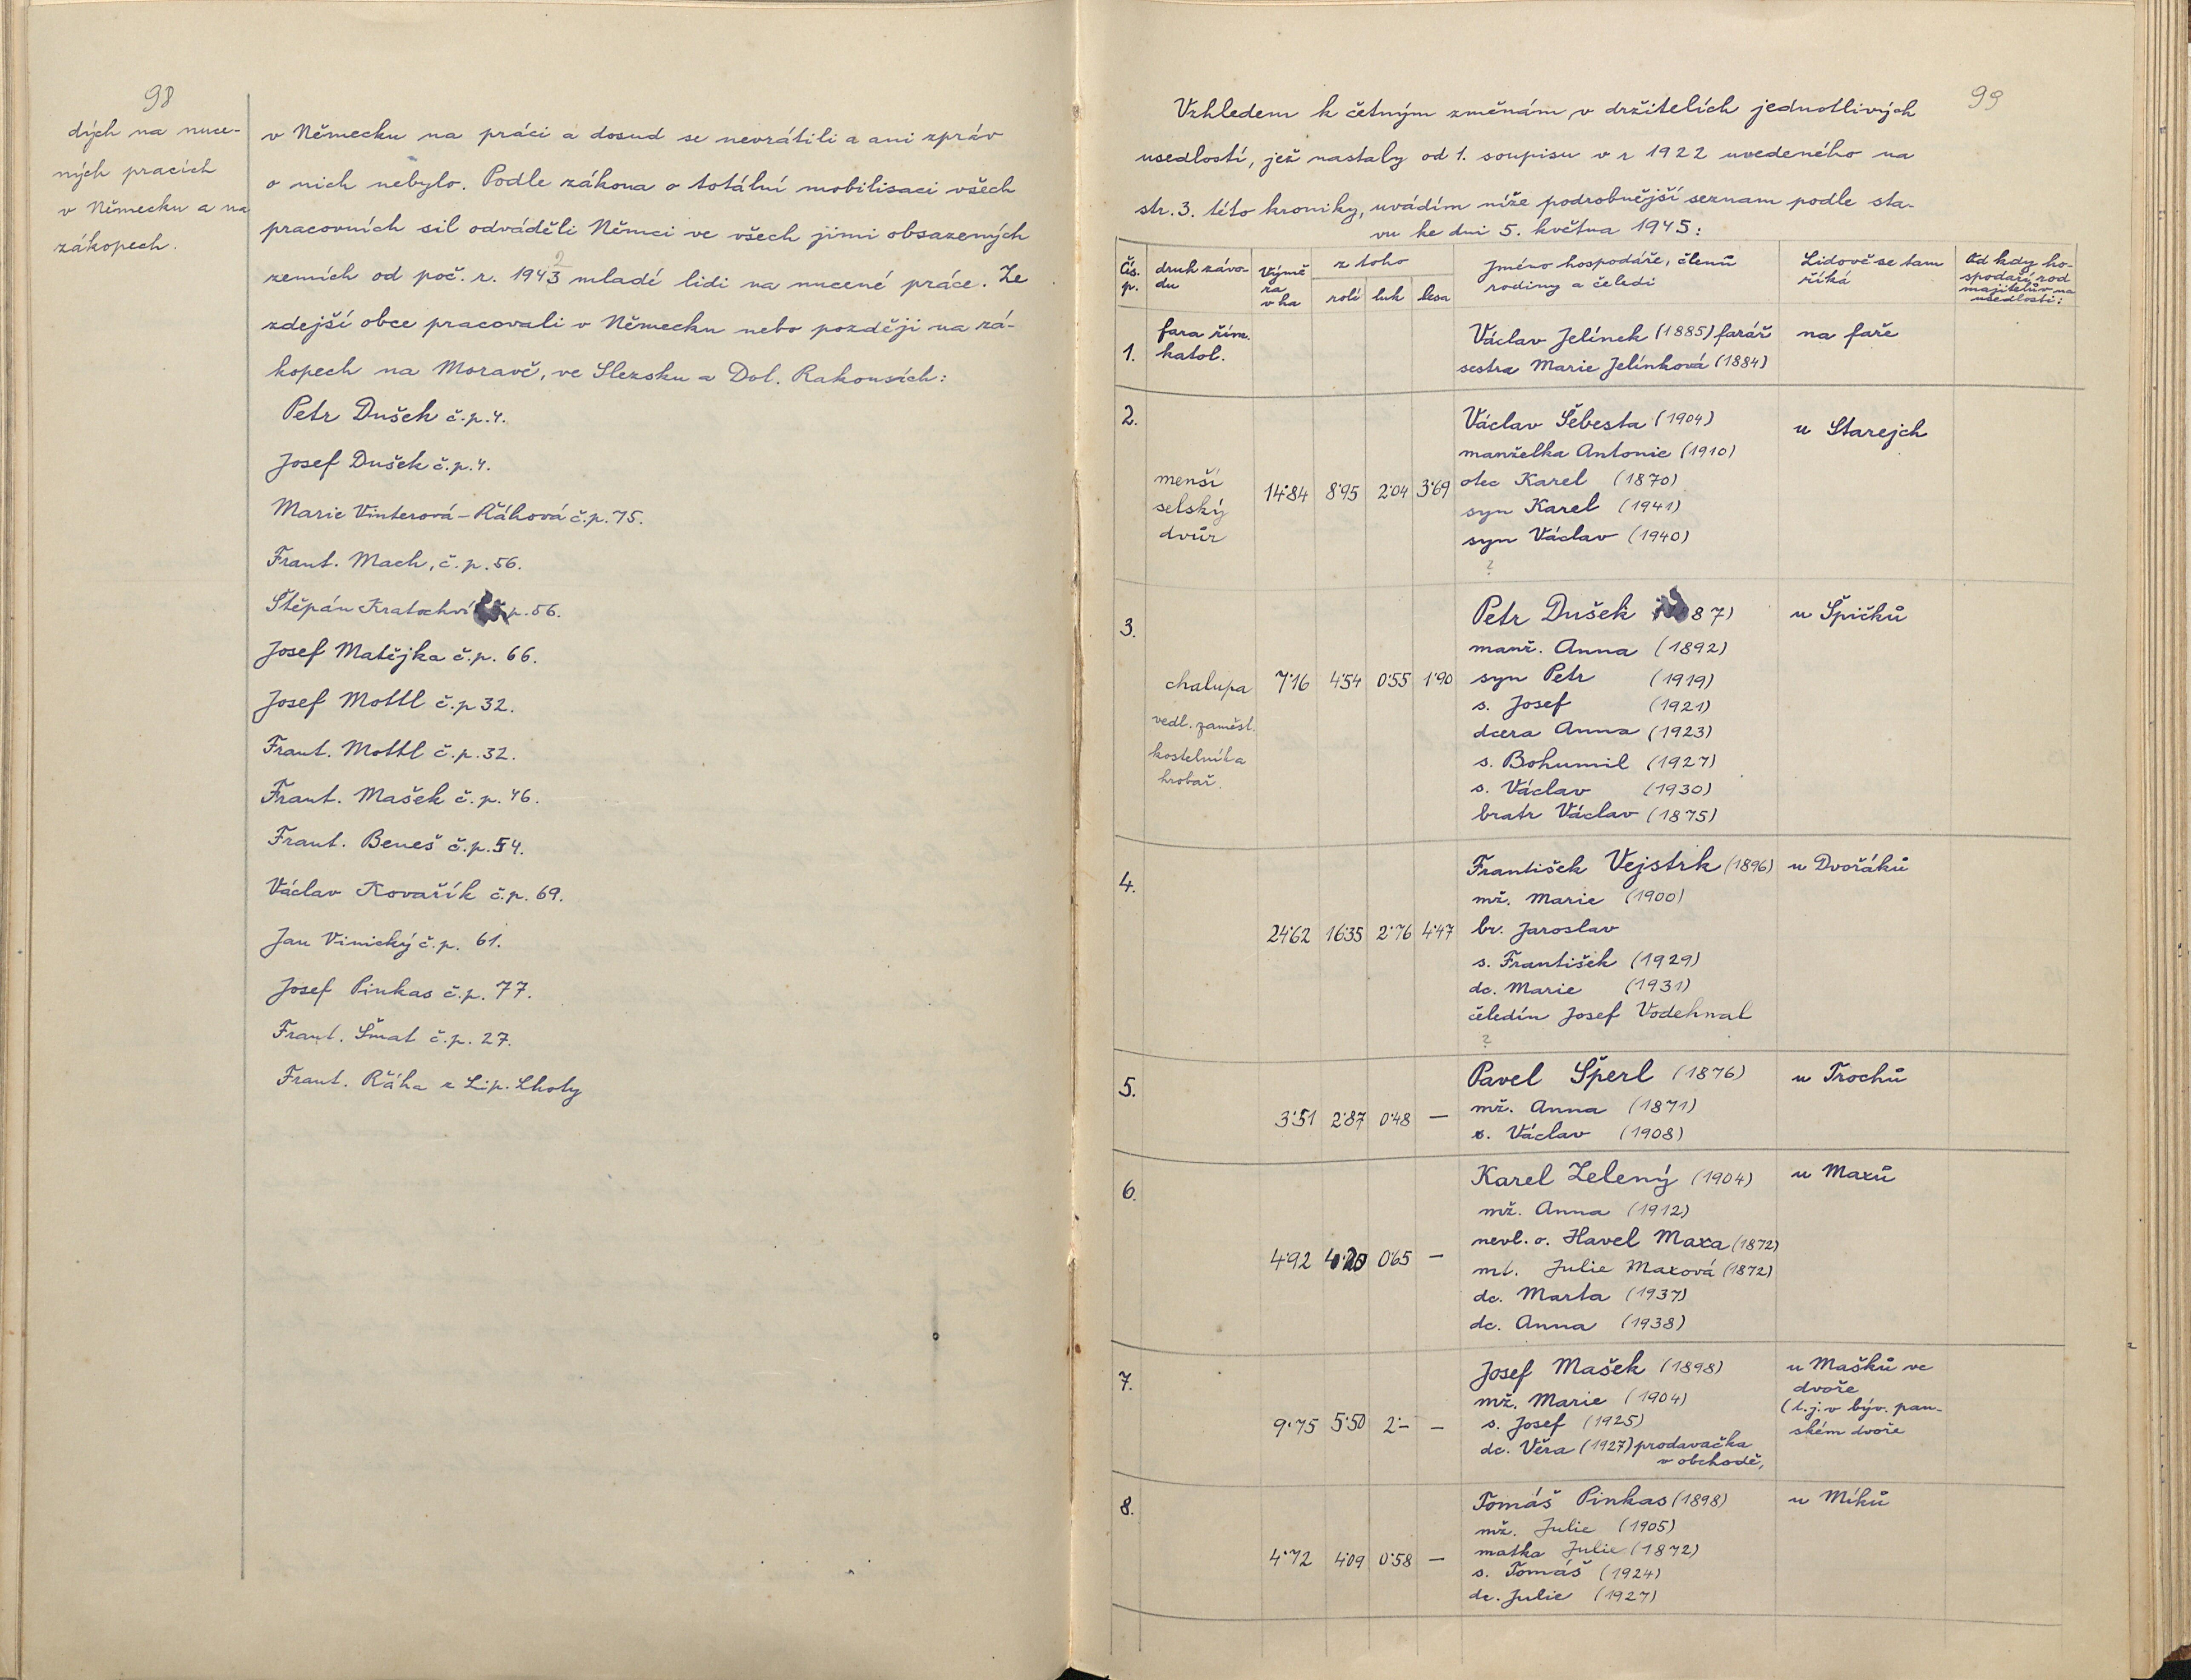 98
dých na nuce-
ných pracích
v Německu a na
zákopech.
v Německu na práci a dosud se nevrátili a ani zpráv
o nich nebylo. Podle zákona o totální mobilisaci všech
pracovních sil odváděli Němci ve všech jimi obsazených
zemích od poč. r. 1943 mladé lidi na nucené práce. Ze
zdejší obce pracovali v Německu nebo později na zá-
kopech na Moravě, ve Slezsku a Dol. Rakousích:
Petr Dušek č.p.4.
Josef Dušek č.p.4.
Marie Vinterová-Řáhová č.p.75.
Frant. Mach, č.p.56.
Štěpán Kratochví p.56.
Josef Matějka č.p. 66.
Josef Mottl č.p 32.
Frant. Mottl č.p.32.
Frant. Mašek č.p.46.
Frant. Beneš č.p.54.
Václav Kovařík č.p.69.
Jan Vinický č.p. 61.
Josef Pinkas č.p. 77.
Frant. Šmat č.p. 27.
Frant. Řáha z Lip. Lhoty
99
Vzhledem k četným změnám v držitelích jednotlivých
usedlostí, jež nastaly od 1. soupisu v r 1922 uvedeného na
str.3. této kroniky, uvádím níže podrobnější seznam podle sta-
vu ke dni 5. května 1945:
Čís. p. druh závo- du Výmě ra v ha z toho rolí luk lesa Jméno hospodáře, členů rodiny a čeledi Lidově se tam říká Od kdy ho- spodaří rod majitelův na usedlosti:
1. fara řím. katol. Václav Jelínek (1885) farář na faře
sestra Marie Jelínková (1884)
2. Václav Šebesta (1904) u Starejch
manželka Antonie (1910)
menší selský dvůr 14·84 8·95 2·04 3·69 otec Karel (1870)
syn Karel (1941)
syn Václav (1940)
?
3. Petr Dušek 87) u Špičků
manž. Anna (1892)
chalupa 7·16 4·54 0·55 1·90 syn Petr (1919)
vedl. zaměst. s. Josef (1921)
dcera Anna (1923)
kostelník a s. Bohumil (1927)
hrobař. s. Václav (1930)
bratr Václav (1875)
4. František Vejstrk (1896) u Dvořáků
mž. Marie (1900)
24·62 16·35 2·76 4·47 br. Jaroslav
s. František (1929)
dc. Marie (1931)
čeledín Josef Vodehnal
?
5. Pavel Šperl (1876) u Trochů
3·51 2·87 0·48 — mž. Anna (1871)
s. Václav (1908)
6. Karel Zelený (1904) u Maxů
mž. Anna (1912)
nevl. o. Havel Maxa (1872)
4·92 0·65 — mt. Julie Maxová (1872)
dc. Marta (1937)
dc. Anna (1938)
7. Josef Mašek (1898) u Mašků ve
mž. Marie (1904) dvoře
9·75 5·50 2·- - s. Josef (1925) (t.j. v býv. pan-
dc. Věra (1927) prodavačka ském dvoře
v obchodě,
8. Tomáš Pinkas (1898) u Míků
mž. Julie (1905)
4·72 4·09 0·58 — matka Julie (1872)
s. Tomáš (1924)
dc. Julie (1927)